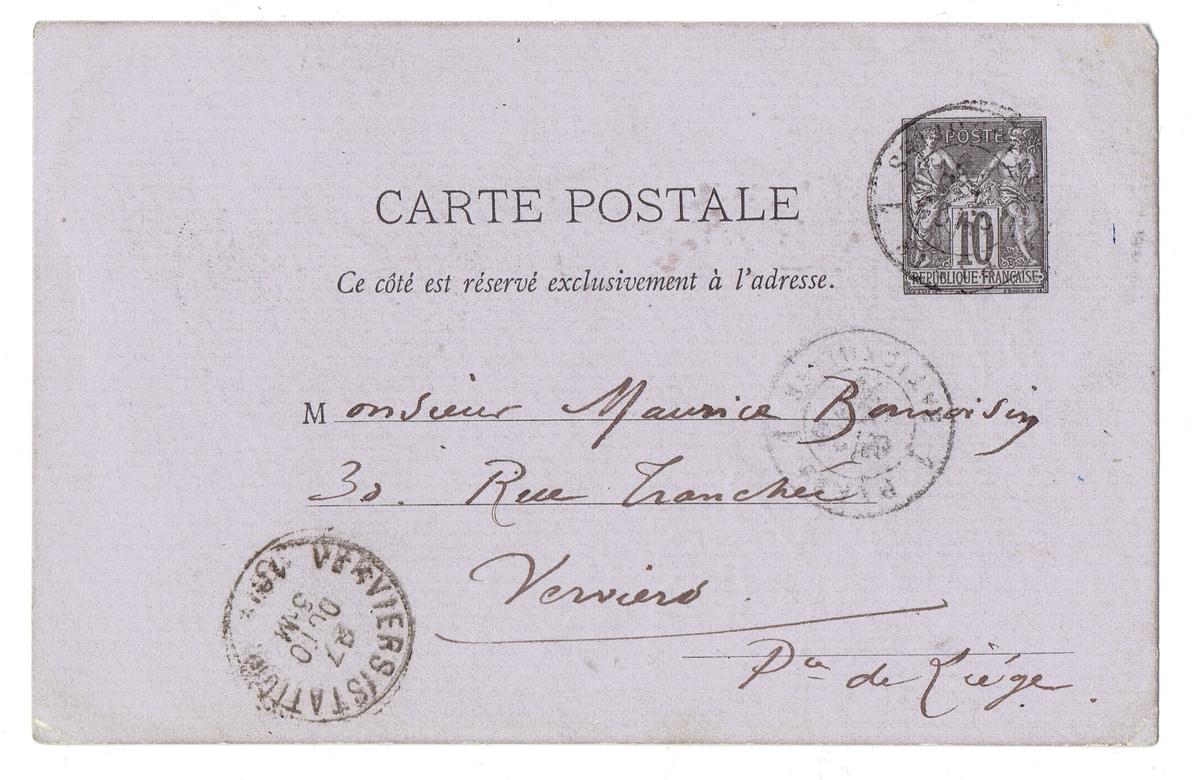 POSTE
10
REPUBLIQUE FRANÇAISE
CARTE POSTALE
Ce côté est réservé exclusivement à l'adresse.
Monsieur Maurice Bonvoisin
30. Rue Tranchée
Verviers.
Pce de Liége.
VERVIERS (STATION)
10
5-M
87